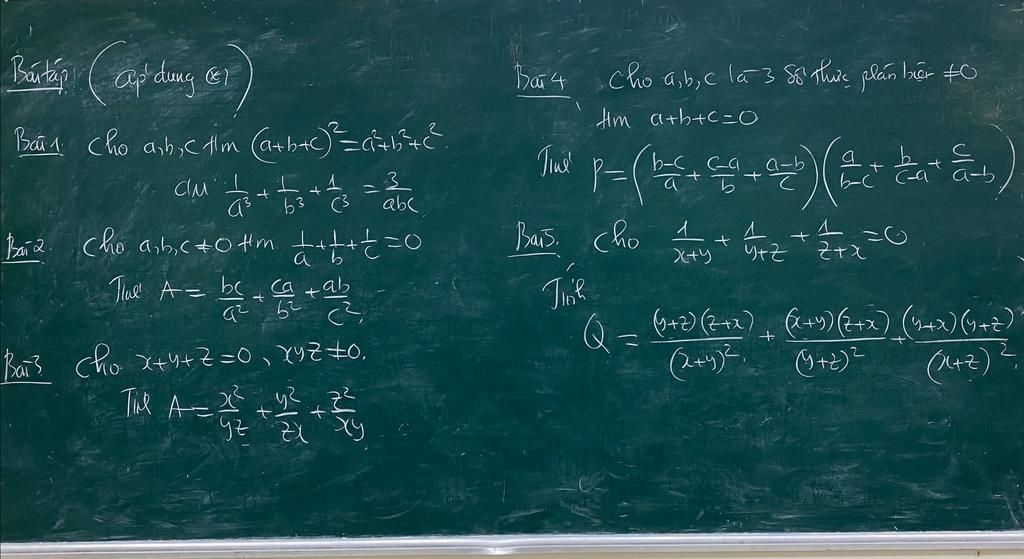 Bài tập (áp dụng (*))
Bài 1 Cho a,b,c t/m (a+b+c)² = a²+b²+c².
CM 1/a³ + 1/b³ + 1/c³ = 3/abc
Bài 2 Cho a,b,c ≠0 t/m. 1/a + 1/b + 1/c = 0
Tính A = bc/a² + ca/b² + ab/c².
Bài 3 Cho x+y+z=0, xyz≠0.
Tính A = x²/yz + y²/zx + z²/xy
Bài 4 Cho a,b,c là 3 số thực phân biệt ≠0
t/m a+b+c=0
Tính P = ((b-c)/a + (c-a)/b + (a-b)/c)(a/(b-c) + b/(c-a) + c/(a-b))
Bài 5. Cho 1/(x+y) + 1/(y+z) + 1/(z+x) = 0
Tính
Q = (y+z)(z+x)/(x+y)² + (x+y)(z+x)/(y+z)² + (y+x)(y+z)/(x+z)²